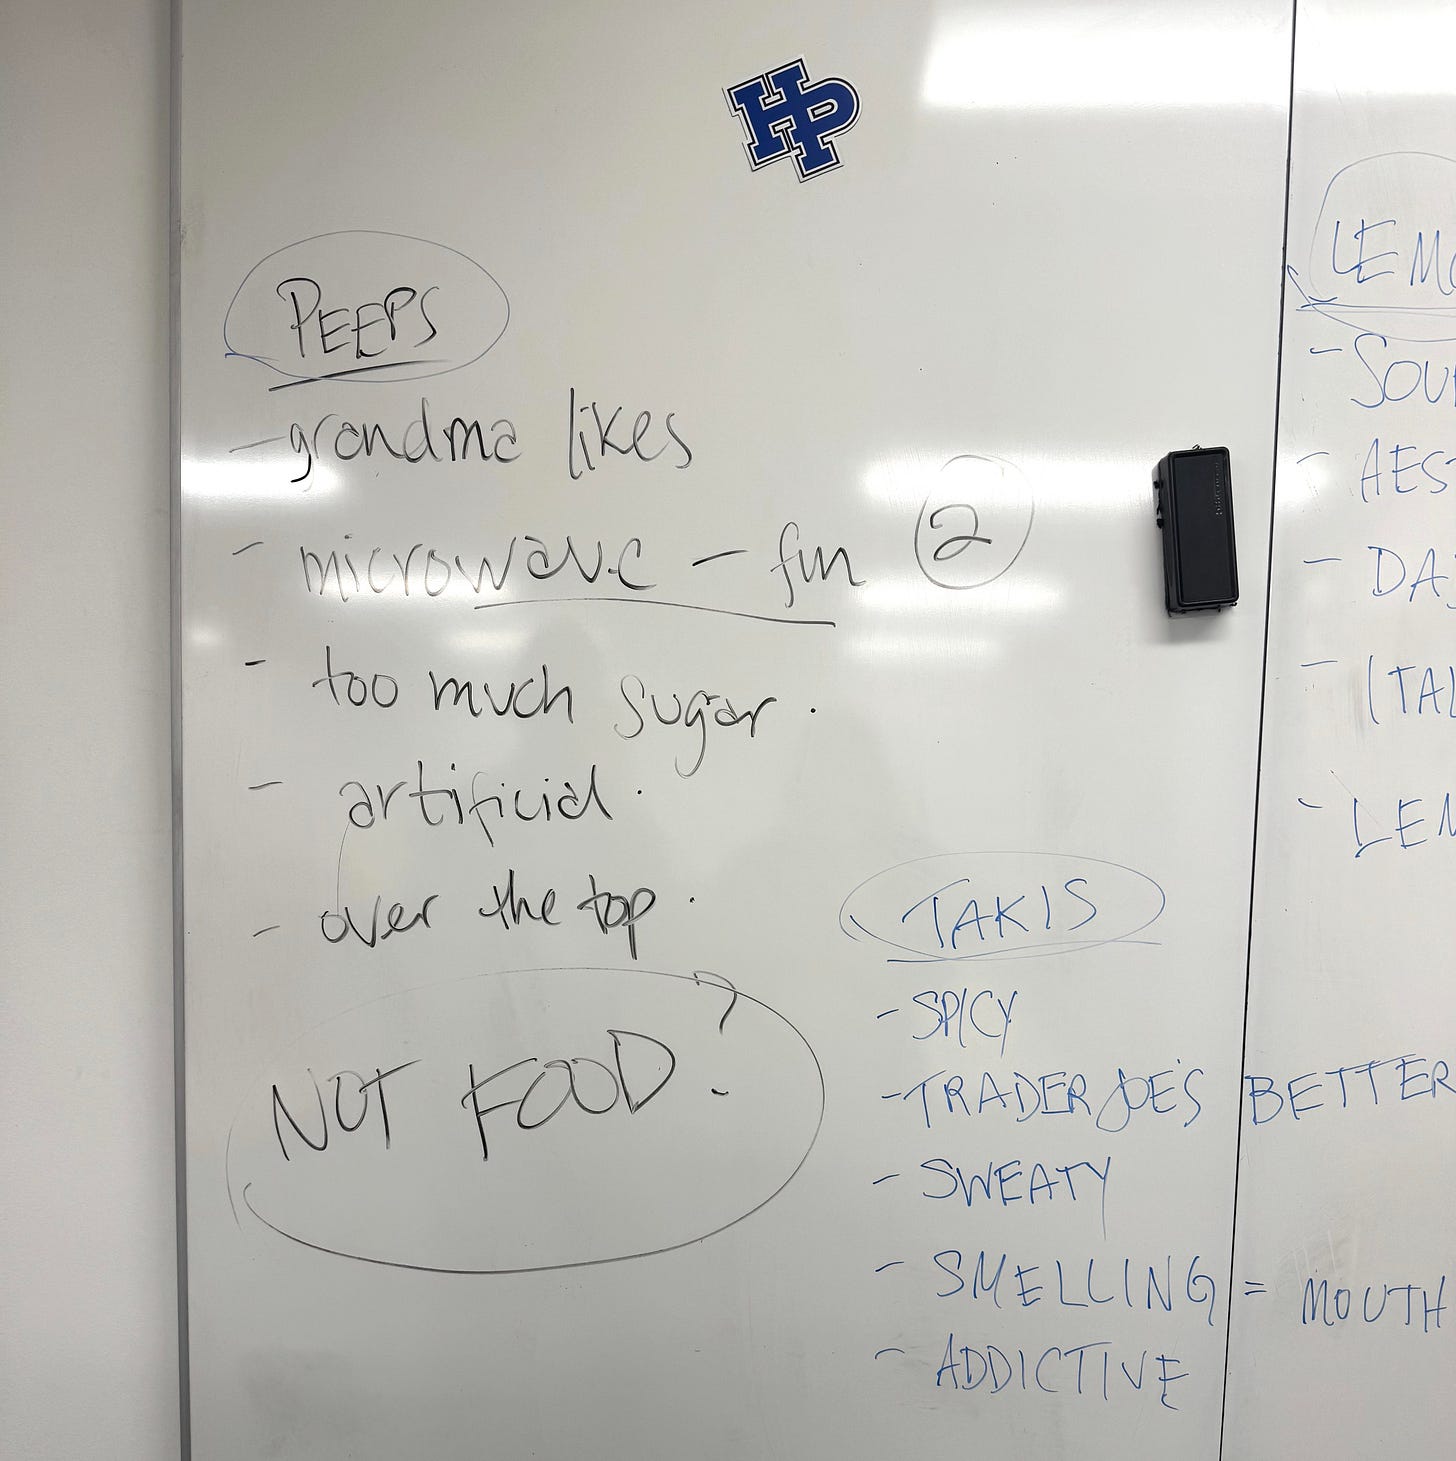 HP
PEEPS
- grandma likes
- microwave - fun 2
- too much sugar.
- artificial.
- over the top.
NOT FOOD?
TAKIS
- SPICY
- TRADER JOE'S BETTER
- SWEATY
- SMELLING = MOUTH
- ADDICTIVE